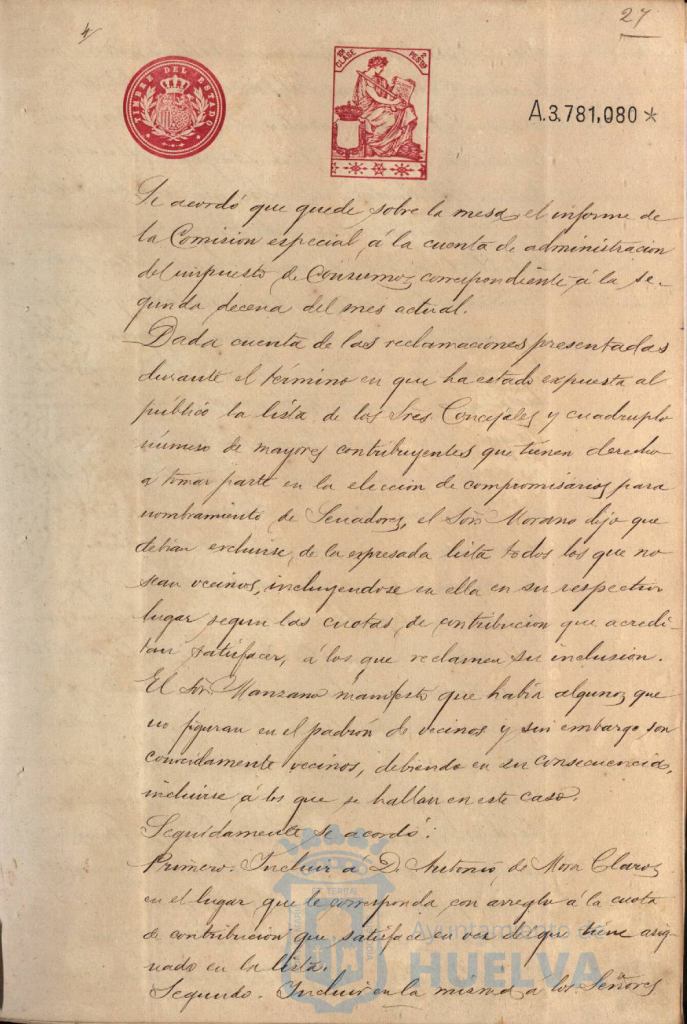 27
TIMBRE DEL ESTADO
10ª CLASE 2 PESETAS
A.3.781,080 *
Se acordó que quede sobre la mesa el informe de
la Comision especial, á la cuenta de administracion
del impuesto de Consumos correspondiente á la se-
gunda decena del mes actual.
Dada cuenta de las reclamaciones presentadas
durante el término en que ha estado expuesta al
público la lista de los Sres Concejales y cuadruplo
número de mayores contribuyentes que tienen derecho
á tomar parte en la eleccion de compromisarios para
nombramiento de Senadores, el Sor Morano dijo que
debian excluirse de la expresada lista todos los que no
sean vecinos, incluyendose en ella en su respectivo
lugar segun las cuotas de contribucion que acredi-
tan satisfacer, á los que reclamen su inclusion.
El Sor Manzano manifestó que habia algunos que
no figuran en el padrón de vecinos y sin embargo son
conocidamente vecinos, debiendo en su consecuencia,
incluirse á los que se hallan en este caso.
Seguidamente se acordó:
Primero. Incluir á D. Antonio de Mora Claros
en el lugar que le corresponda con arreglo á la cuota
de contribucion que satisface en vez del que tiene asig-
nado en la lista.
Segundo. Incluir en la misma a los Señores
Ayuntamiento de
HUELVA